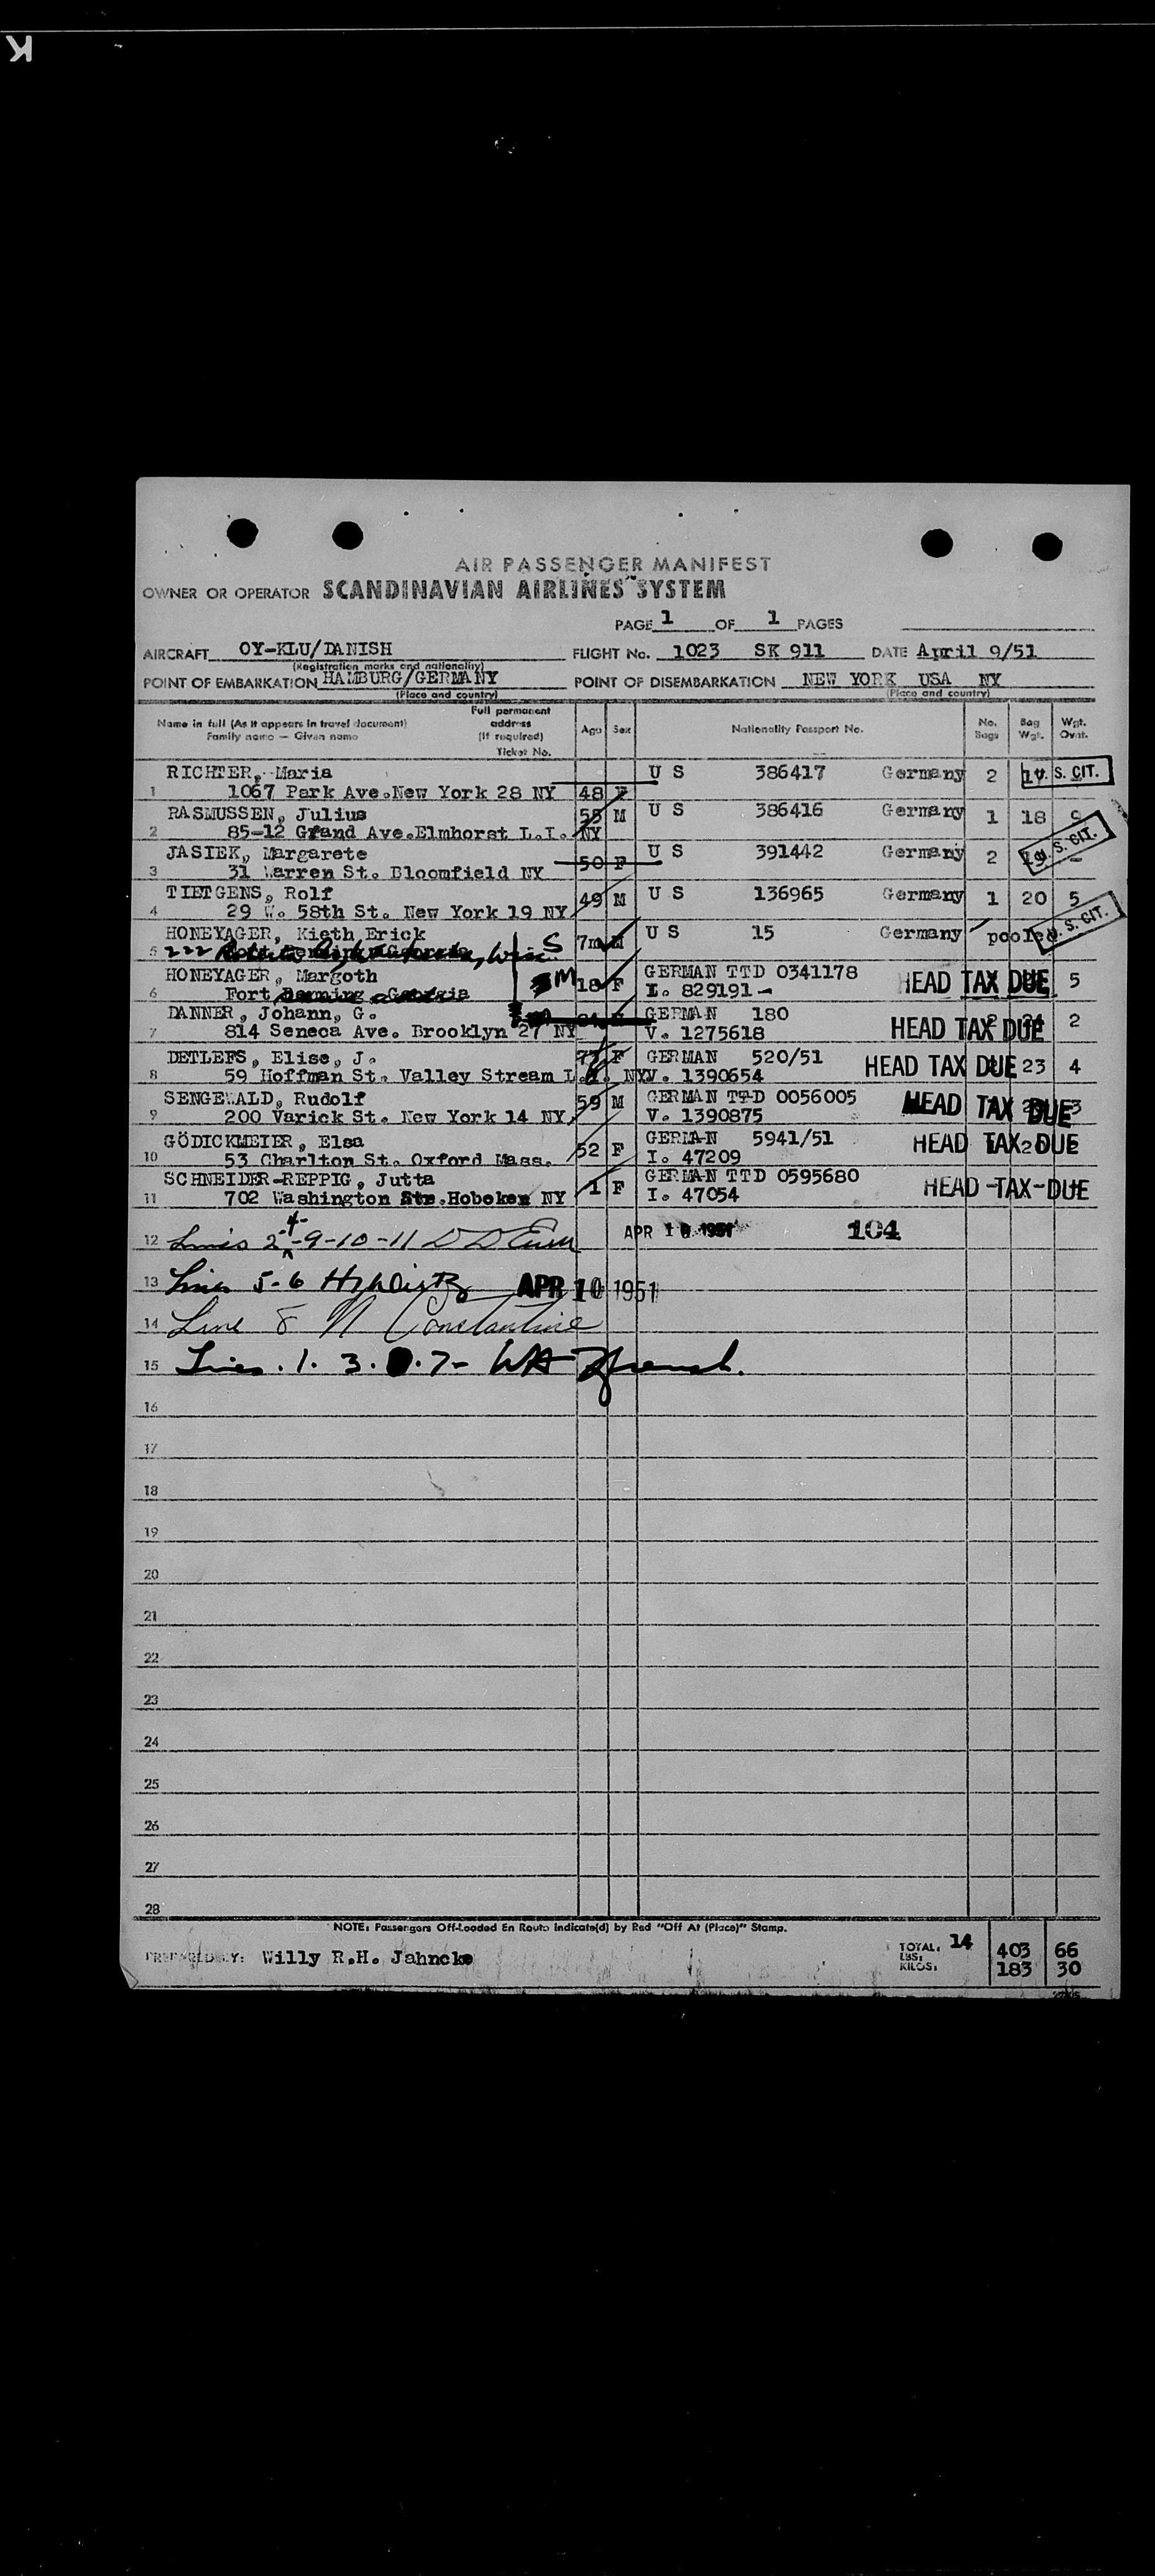 K
AIR PASSENGER MANIFEST
OWNER OR OPERATOR SCANDINAVIAN AIRLINES SYSTEM
PAGE 1 OF 1 PAGES
AIRCRAFT OY-KLU/DANISH FLIGHT No. 1023 SK 911 DATE April 9/51
(Registration marks and nationality)
POINT OF EMBARKATION HAMBURG/GERMANY POINT OF DISEMBARKATION NEW YORK USA NY
(Place and country) (Place and country)
Name in full (As it appears in travel document) Family name — Given name Full permanent address (If required) Ticket No. Age Sex Nationality Passport No. No. Bags Bag Wgt. Wgt. Ovnt.
RICHTER, Maria U S 386417 Germany 2 U. S. CIT.
1 1067 Park Ave. New York 28 NY 48 F
RASMUSSEN, Julius 55 M U S 386416 Germany 1 18
2 85-12 Grand Ave. Elmhorst L.I. NY
JASIEK, Margarete U S 391442 Germany 2 U. S. CIT. -
3 31 Warren St. Bloomfield NY 50 F
TIETGENS, Rolf 49 M U S 136965 Germany 1 20 5
4 29 W. 58th St. New York 19 NY
HONEYAGER, Kieth Erick 7m M U S 15 Germany pooled U. S. CIT.
5 222 S
HONEYAGER, Margoth M 18 F GERMAN TTD 0341178 HEAD TAX DUE 5
6 Fort Benning Georgia I. 829191-
DANNER, Johann, G. GERMAN 180 HEAD TAX DUE 2
7 814 Seneca Ave. Brooklyn 27 NY V. 1275618
DETLEFS, Elise, J. F GERMAN 520/51 HEAD TAX DUE 23 4
8 59 Hoffman St. Valley Stream L.I. NY V. 1390654
SENGEWALD, Rudolf 59 M GERMAN TTD 0056005 HEAD TAX DUE 3
9 200 Varick St. New York 14 NY V. 1390875
GÖDICKMEIER, Elsa 52 F GERMAN 5941/51 HEAD TAX DUE
10 53 Charlton St. Oxford Mass. I. 47209
SCHNEIDER-REPPIG, Jutta 1 F GERMAN TTD 0595680 HEAD TAX DUE
11 702 Washington Str. Hoboken NY I. 47054
12 Lines 2-4-9-10-11 APR 10 1951 104
13 Lines 5-6 APR 10 1951
14 Line 8 N Constantine
15 Lines . 1. 3. . 7-
16
17
18
19
20
21
22
23
24
25
26
27
28
NOTE: Passengers Off-Loaded En Route Indicate(d) by Red "Off At (Place)" Stamp.
PREPARED BY: Willy R.H. Jahncke TOTAL: 14
LBS: 403 66
KILOS: 183 30